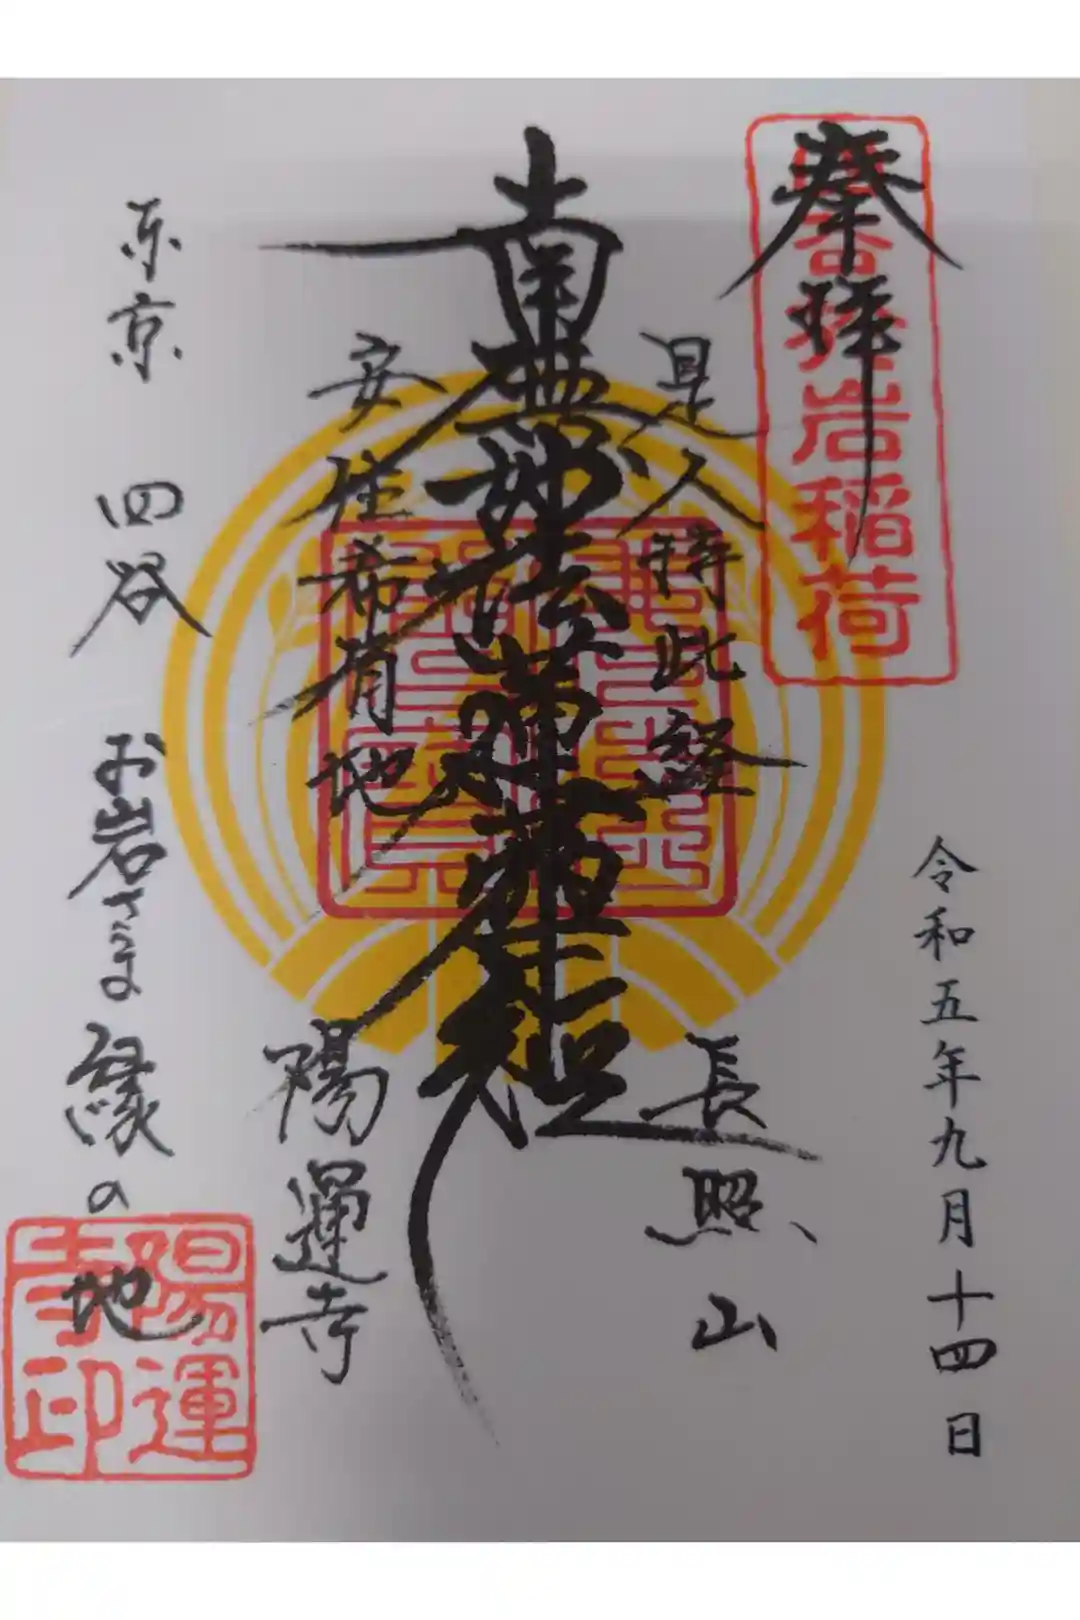 奉拝
岩稲荷
令和五年九月十四日
是人持此経
長照山
南無妙法蓮華経
安住希有地
陽運寺
東京 四谷 お岩さま縁の地
陽運寺印